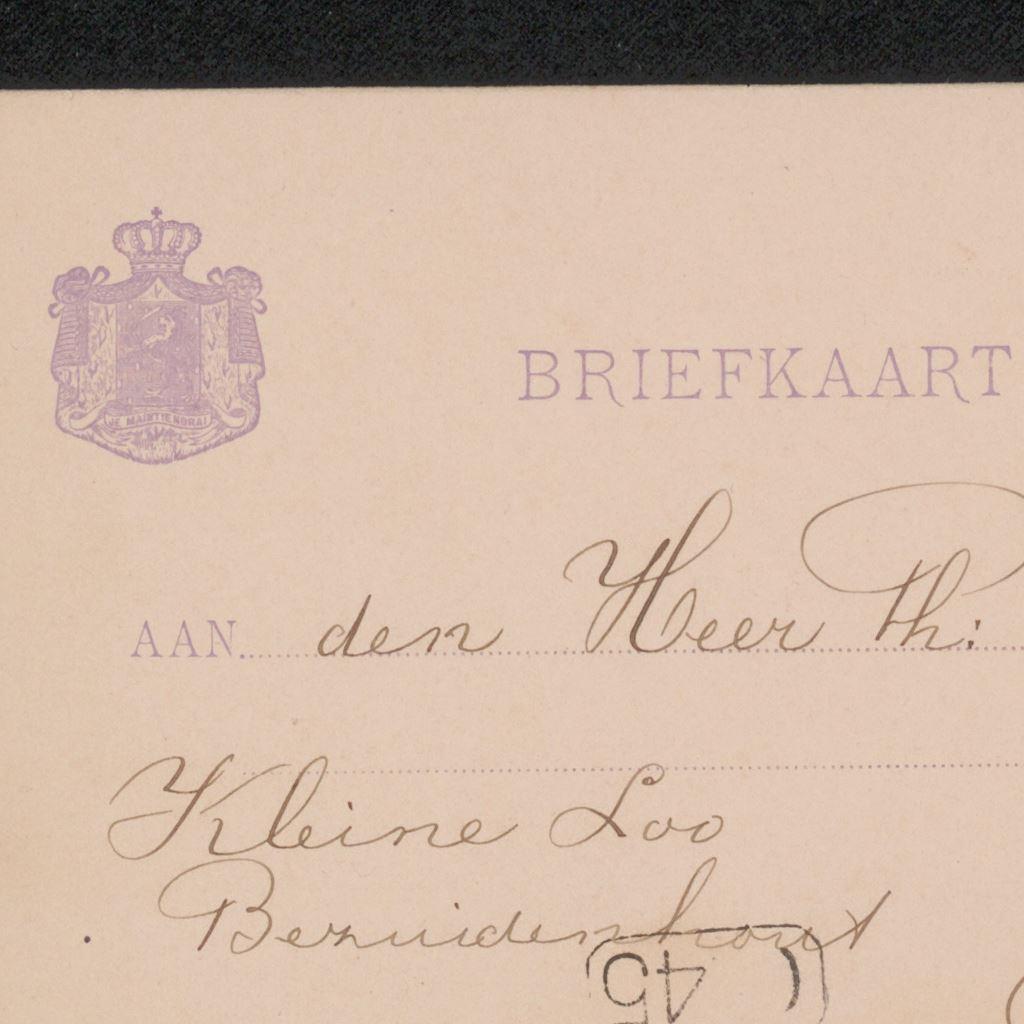 JE MAINTIENDRAI
BRIEFKAART
AAN den Heer Ph:
Kleine Loo
Bezuidenhout
45